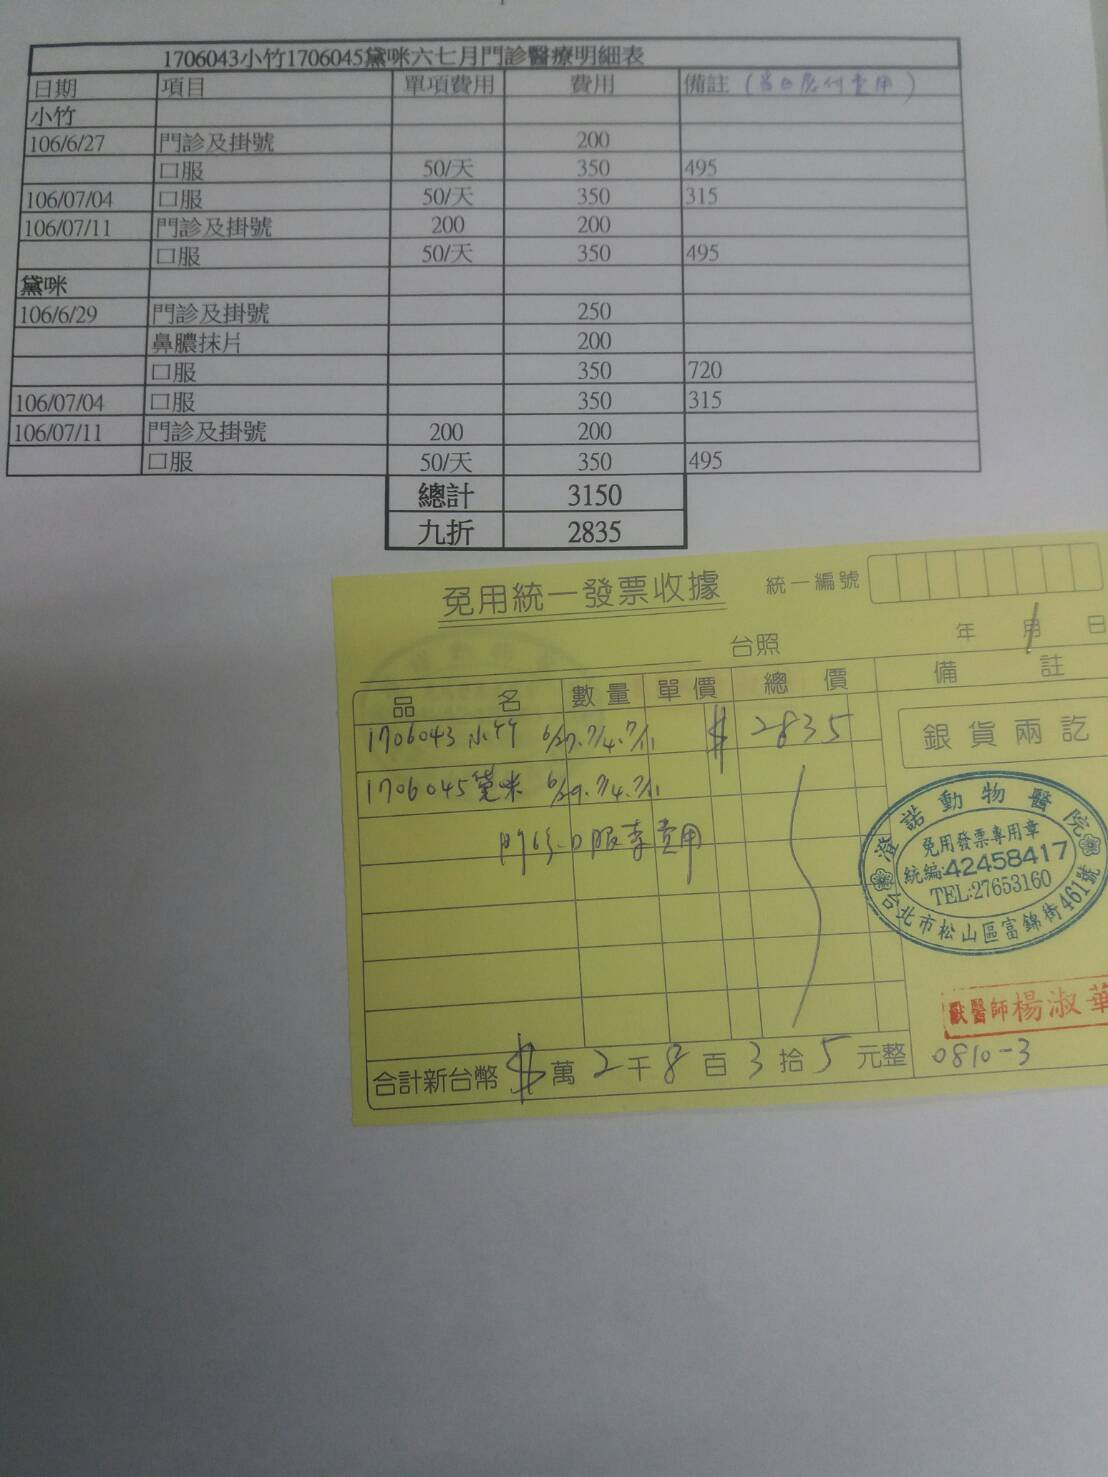 1706043小竹1706045黛咪六七月門診醫療明細表
日期 項目 單項費用 費用 備註 (當日應付費用)
小竹
106/6/27 門診及掛號 200
口服 50/天 350 495
106/07/04 口服 50/天 350 315
106/07/11 門診及掛號 200 200
口服 50/天 350 495
黛咪
106/6/29 門診及掛號 250
鼻膿抹片 200
口服 350 720
106/07/04 口服 350 315
106/07/11 門診及掛號 200 200
口服 50/天 350 495
總計 3150
九折 2835
免用統一發票收據 統一編號
台照 年 月 日
品名 數量 單價 總價 備註
1706043 小竹 6/27.7/4.7/11 $ 2835
銀貨兩訖
1706045黛米 6/29.7/4.7/11
門診.口服藥費用
澄諾動物醫院
免用發票專用章
統編:42458417
TEL:27653160
台北市松山區富錦街461號
獸醫師楊淑華
合計新台幣 $ 萬 2 千 8 百 3 拾 5 元整
0810-3